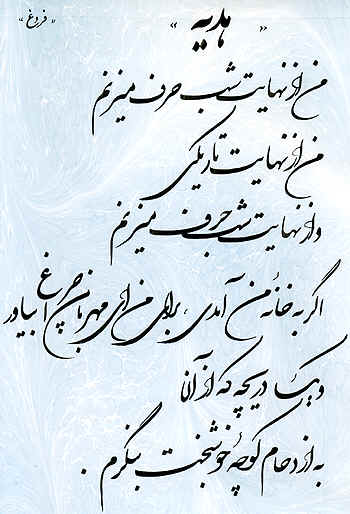 « هدیه »
« فروغ »
من از نهایت شب حرف میزنم
من از نهایت تاریکی
و از نهایت شب حرف میزنم
اگر به خانهٔ من آمدی ، برای من ای مهربان چراغ بیاور
و یک دریچه که از آنجا
به ازدحام کوچهٔ خوشبخت بنگرم .